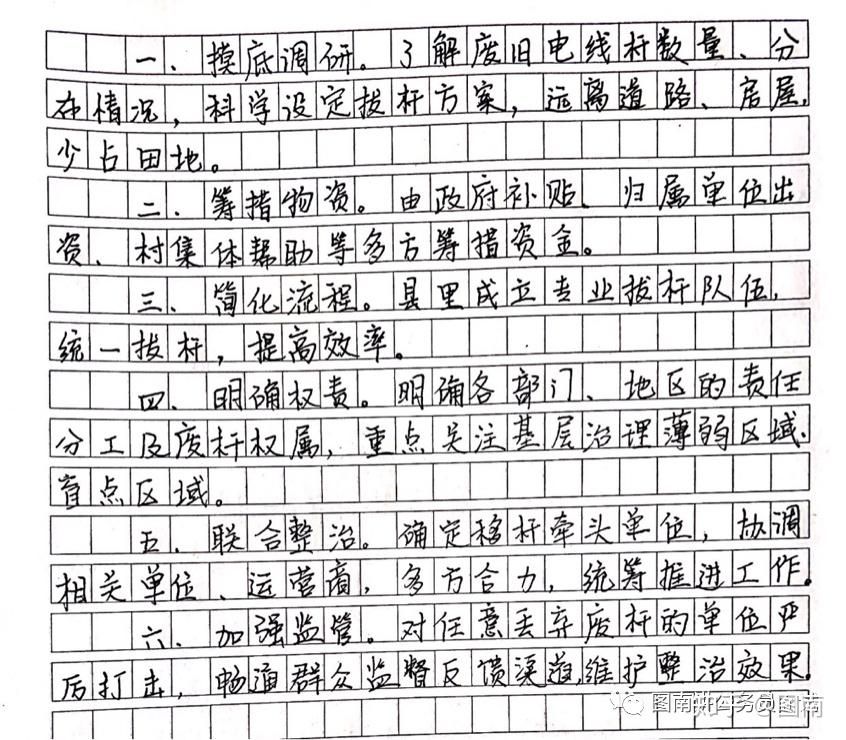 一、摸底调研。了解废旧电线杆数量、分
布情况，科学设定拔杆方案，远离道路、房屋，
少占田地。
二、筹措物资。由政府补贴、归属单位出
资、村集体帮助等多方筹措资金。
三、简化流程。县里成立专业拔杆队伍，
统一拔杆，提高效率。
四、明确权责。明确各部门、地区的责任
分工及废杆权属，重点关注基层治理薄弱区域、
盲点区域。
五、联合整治。确定移杆牵头单位，协调
相关单位、运营商，多方合力，统筹推进工作。
六、加强监管。对任意丢弃废杆的单位严
厉打击，畅通群众监督反馈渠道，维护整治效果。
知乎 @图南